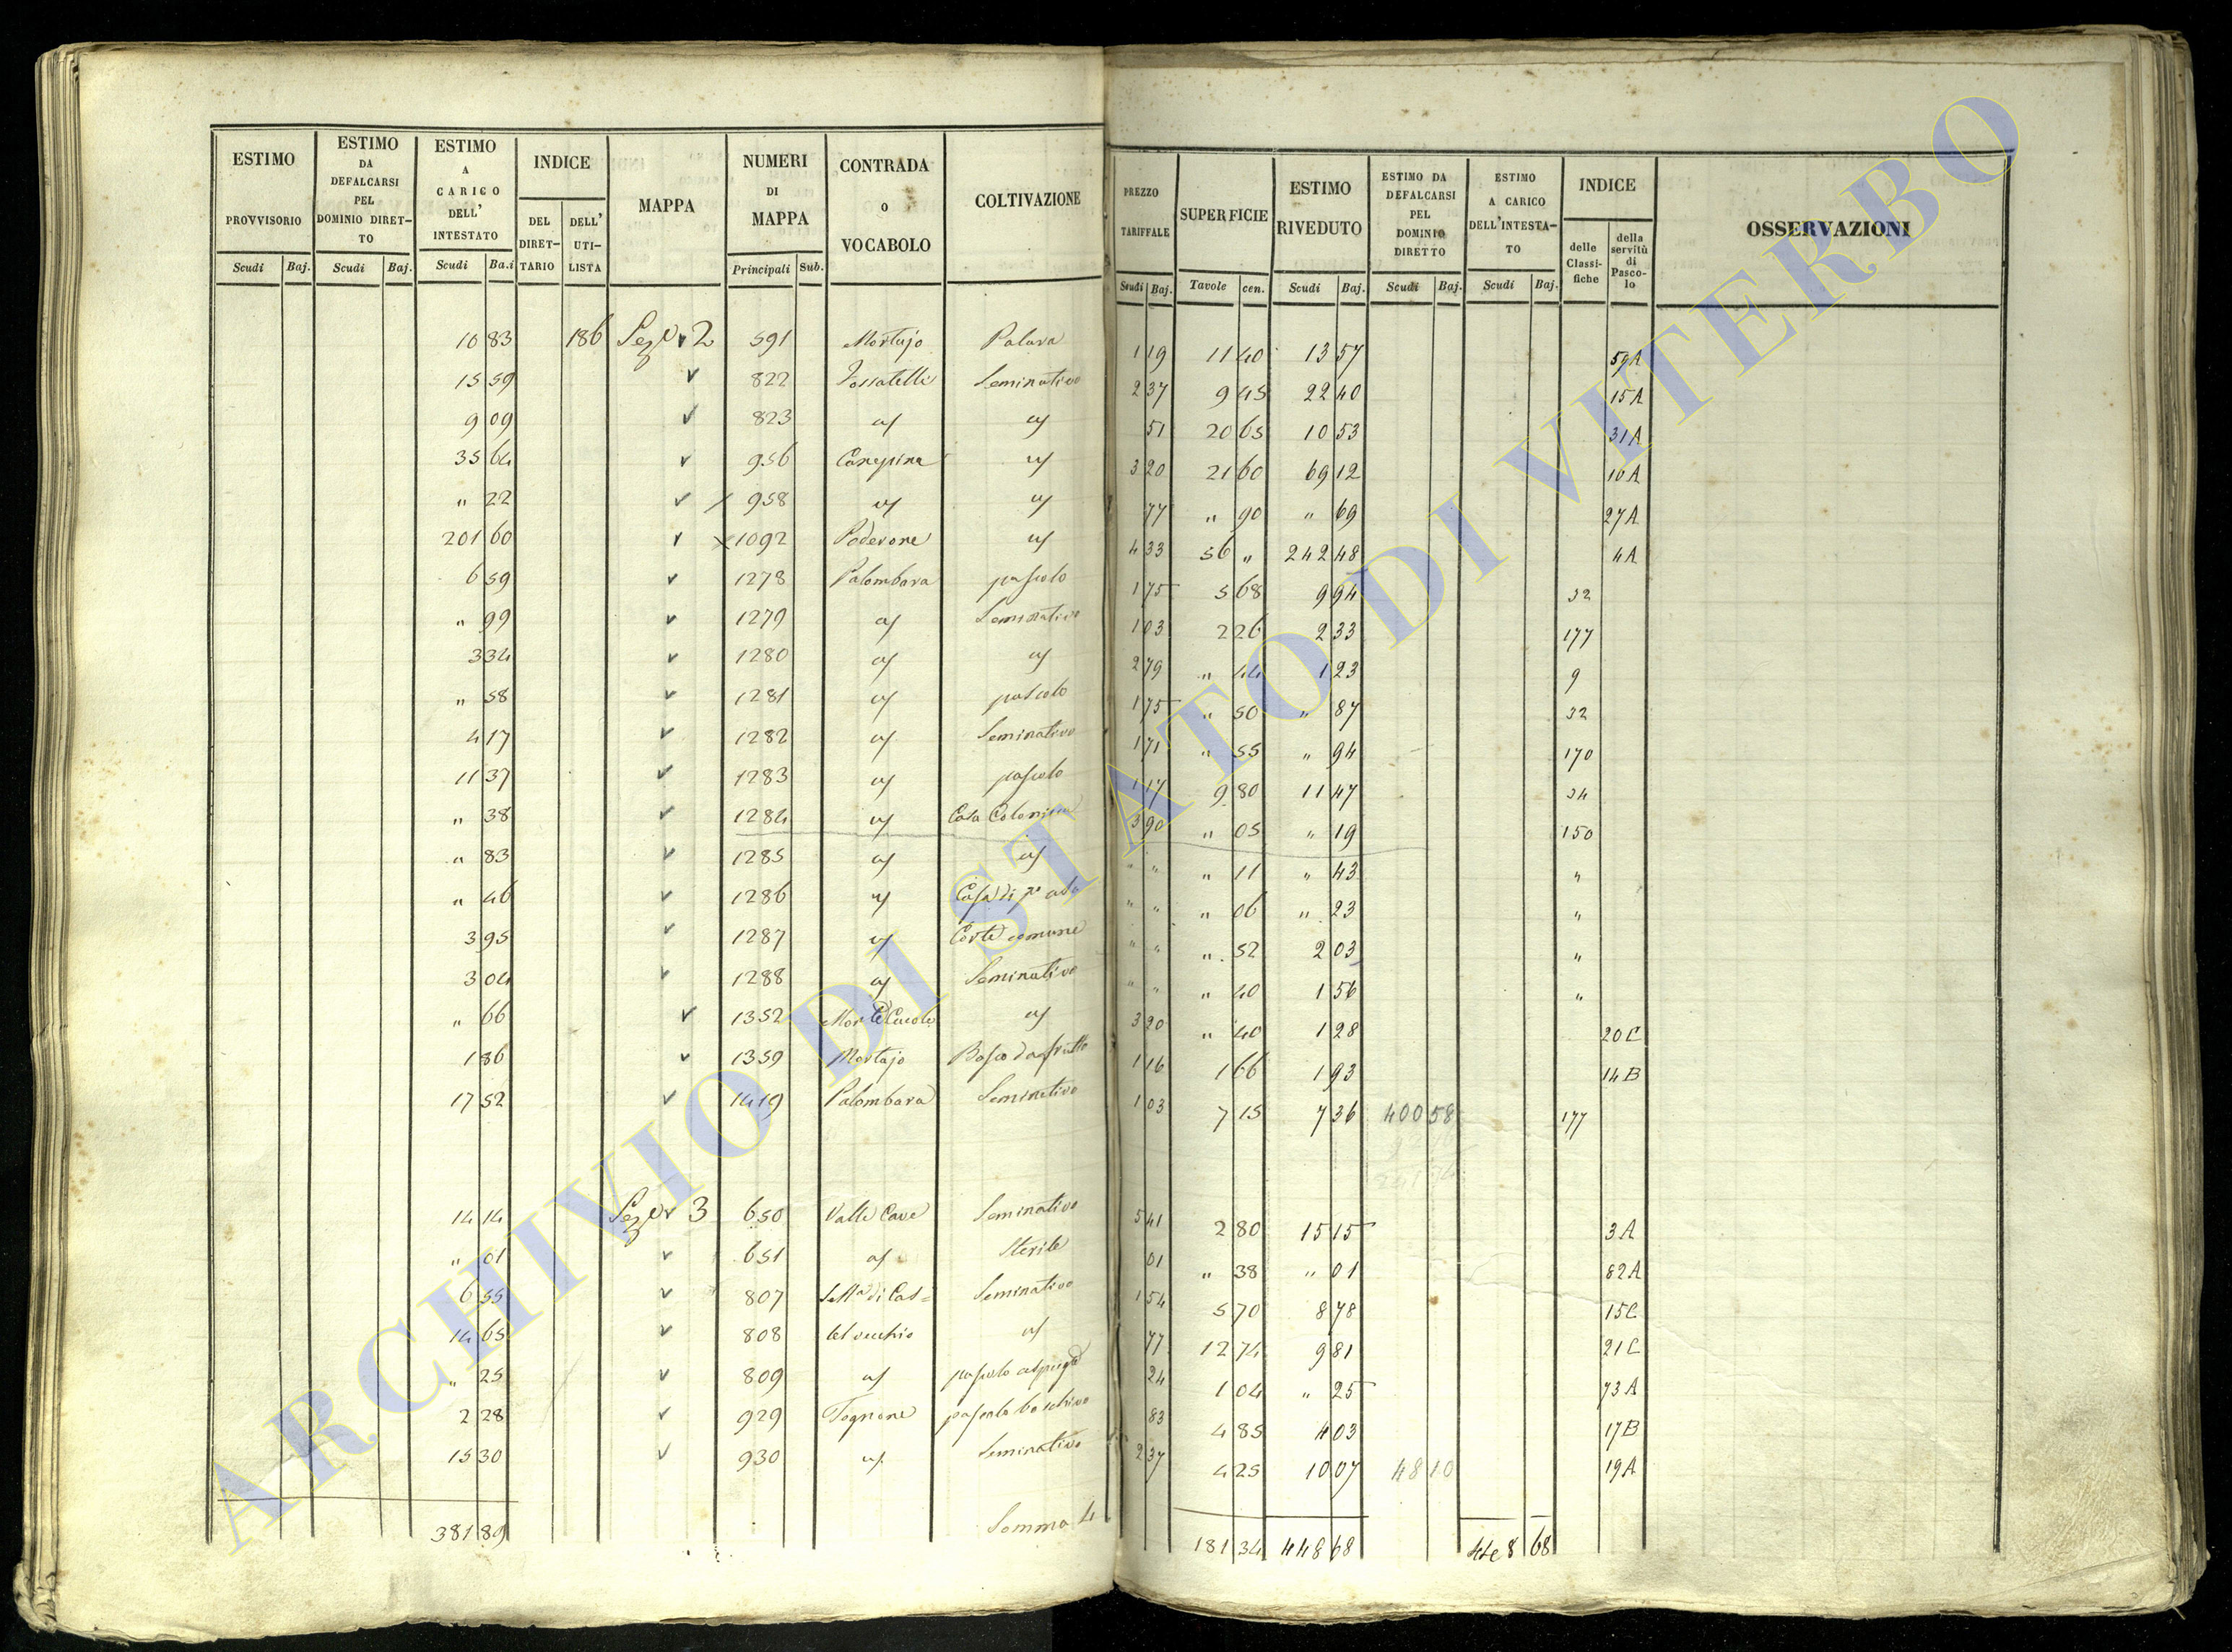 ESTIMO PROVVISORIO Scudi Baj.
ESTIMO DA DEFALCARSI PEL DOMINIO DIRETTO Scudi Baj.
ESTIMO A CARICO DELL' INTESTATO Scudi Ba.i
INDICE DEL DIRETTARIO DELL' UTILISTA
MAPPA
NUMERI DI MAPPA Principali Sub.
CONTRADA O VOCABOLO
COLTIVAZIONE
PREZZO TARIFFALE Scudi Baj.
SUPERFICIE Tavole cen.
ESTIMO RIVEDUTO Scudi Baj.
ESTIMO DA DEFALCARSI PEL DOMINIO DIRETTO Scudi Baj.
ESTIMO A CARICO DELL'INTESTATO Scudi Baj.
INDICE delle Classifiche della servitù di Pascolo
OSSERVAZIONI
10 83 186 Sez.e v 2 591 Mortajo 1 19 11 40 13 57 59A
15 59 v 822 Fossatelli Seminativo 2 37 9 45 22 40 15A
9 09 v 823 51 20 65 10 53 31A
35 64 v 956 Canepine 3 20 21 60 69 12 10A
" 22 v 958 77 " 90 " 69 27A
201 60 v 1092 Poderone 4 33 56 " 242 48 4A
6 59 v 1278 Palombara pascolo 1 75 5 68 9 94 32
" 99 v 1279 Seminativo 1 03 2 26 2 33 177
3 34 v 1280 2 79 " 44 1 23 9
" 58 v 1281 pascolo 1 75 " 50 " 87 32
4 17 v 1282 Seminativo 1 71 " 55 " 94 170
11 37 v 1283 pascolo 1 17 9 80 11 47 34
" 38 v 1284 Casa Colonica 3 90 " 05 " 19 150
" 83 v 1285 " " " 11 " 43 "
" 46 v 1286 Casa di " " " 06 " 23 "
3 95 v 1287 Corte comune " " " 52 2 03 "
3 04 v 1288 Seminativo " " " 40 1 56 "
" 66 v 1352 Monte Cucolo 3 20 " 40 1 28 20C
1 86 v 1359 Mortajo Bosco da frutto 1 16 1 66 1 93 14B
17 52 v 1419 Palombara Seminativo 1 03 7 15 7 36 400 58 177
14 14 Sez.e v 3 650 Valle Cave Seminativo 5 41 2 80 15 15 3A
" 01 v 651 Sterile 01 " 38 " 01 82A
6 55 v 807 di Cas= Seminativo 1 54 5 70 8 78 15C
14 65 v 808 tel vecchio 77 12 74 9 81 21C
" 25 v 809 pascolo 24 1 04 " 25 73A
2 28 v 929 Tognone pascolo boschivo 83 4 85 4 03 17B
15 30 v 930 Seminativo 2 37 4 25 10 07 48 10 19A
381 89 Somma 181 34 448 68 448 68
ARCHIVIO DI STATO DI VITERBO